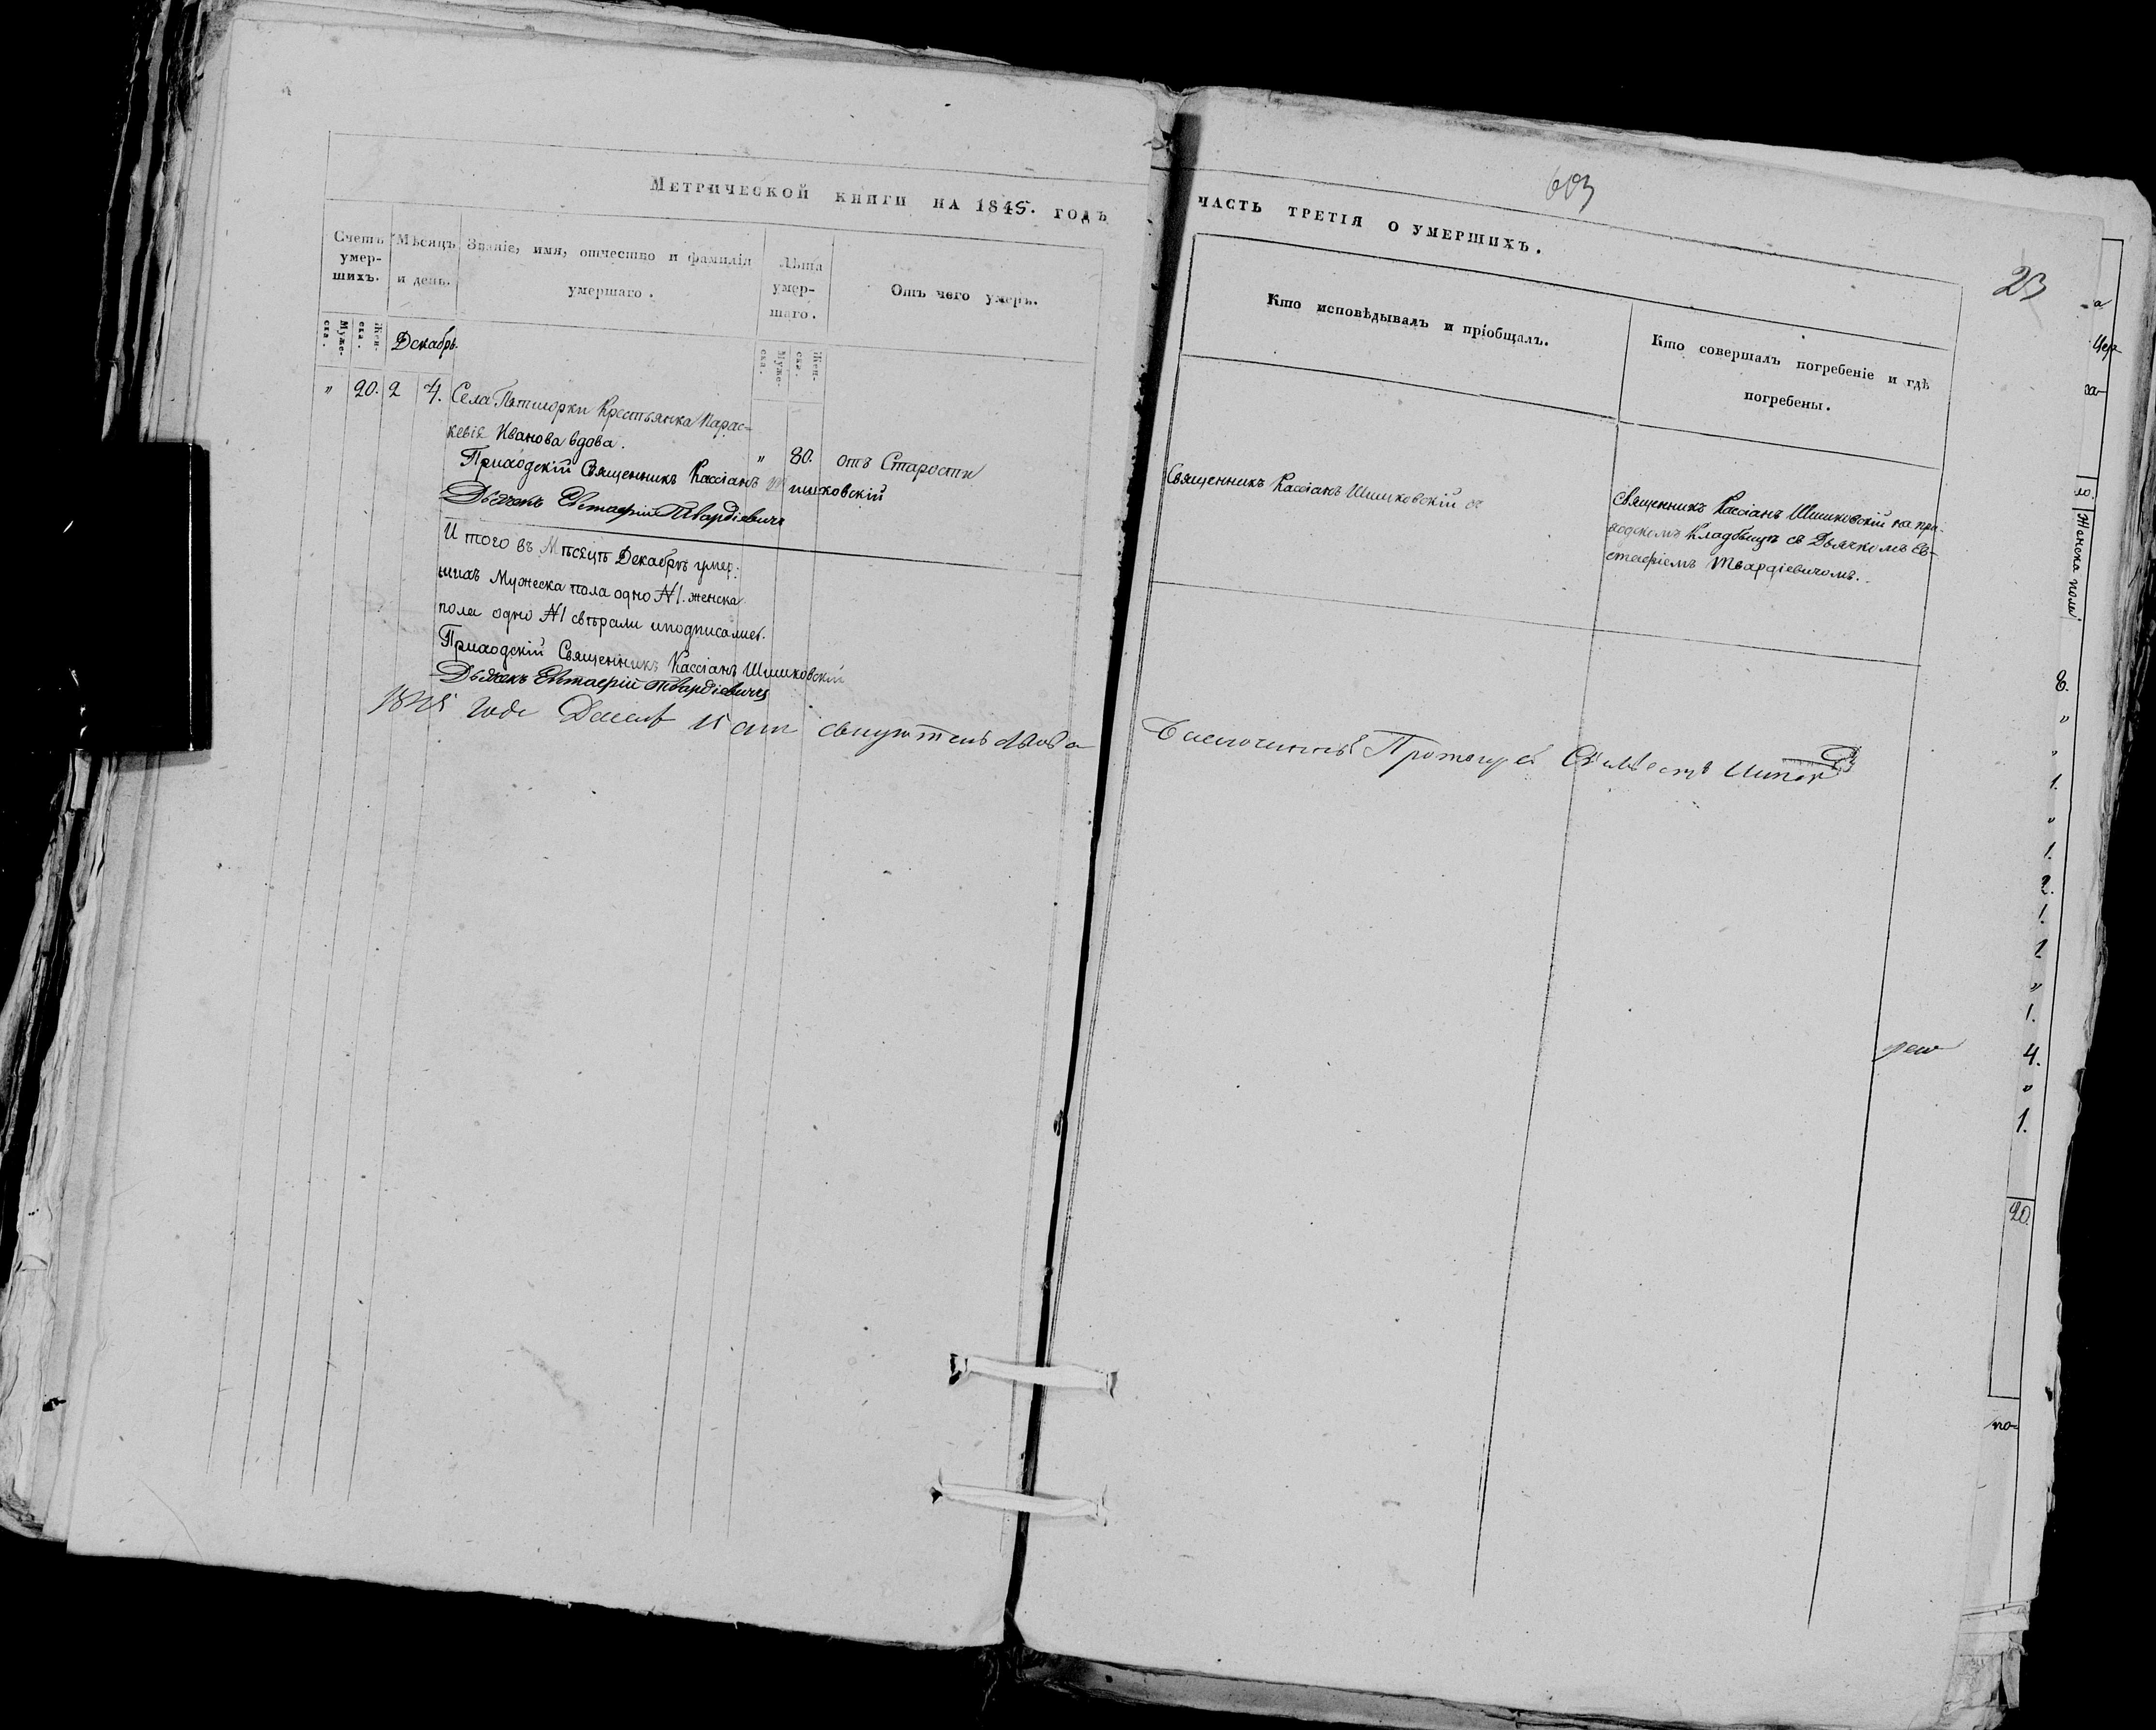 Метрической книги на 1845. годъ
Счетъ умер-
шихъ.
Муже-
ска.
Жен-
ска.
Мѣсяцъ
и день.
Декабрь.
Званіе, имя, отчество и фамилія
умершаго.
Лѣта
умер-
шаго.
Муже-
ска.
Жен-
ска.
Отъ чего умеръ.
" 20. 2 4. Села Пятигорки Крестьянка Парас-
кевія Иванова вдова. " 80. отъ Старости
Приходскій Священникъ Кассіанъ Шишковскій
Дьячекъ Евстафій Твардіевичъ
И того въ Мѣсяцѣ Декабрѣ умер-
шихъ Мужеска пола одно №1. женска
пола одно №1 свѣряли и подписались.
Приходскій Священникъ Кассіанъ Шишковскій
Дьячекъ Евстафій Твардіевичъ
1845 года 15 дня
603
часть третія о умершихъ.
23
Кто исповѣдывалъ и пріобщалъ.
Кто совершалъ погребеніе и гдѣ
погребены.
Священникъ Кассіанъ Шишковскій
Священникъ Кассіанъ Шишковскій на при-
ходскомъ Кладбищѣ съ Дьячкомъ Ев-
стафіемъ Твардіевичомъ.
Благочинный Протоіерей
а
чер
за-
Женска пола
8.
"
"
1.
"
1.
2.
1.
1
"
1.
4.
"
1.
20.
по-